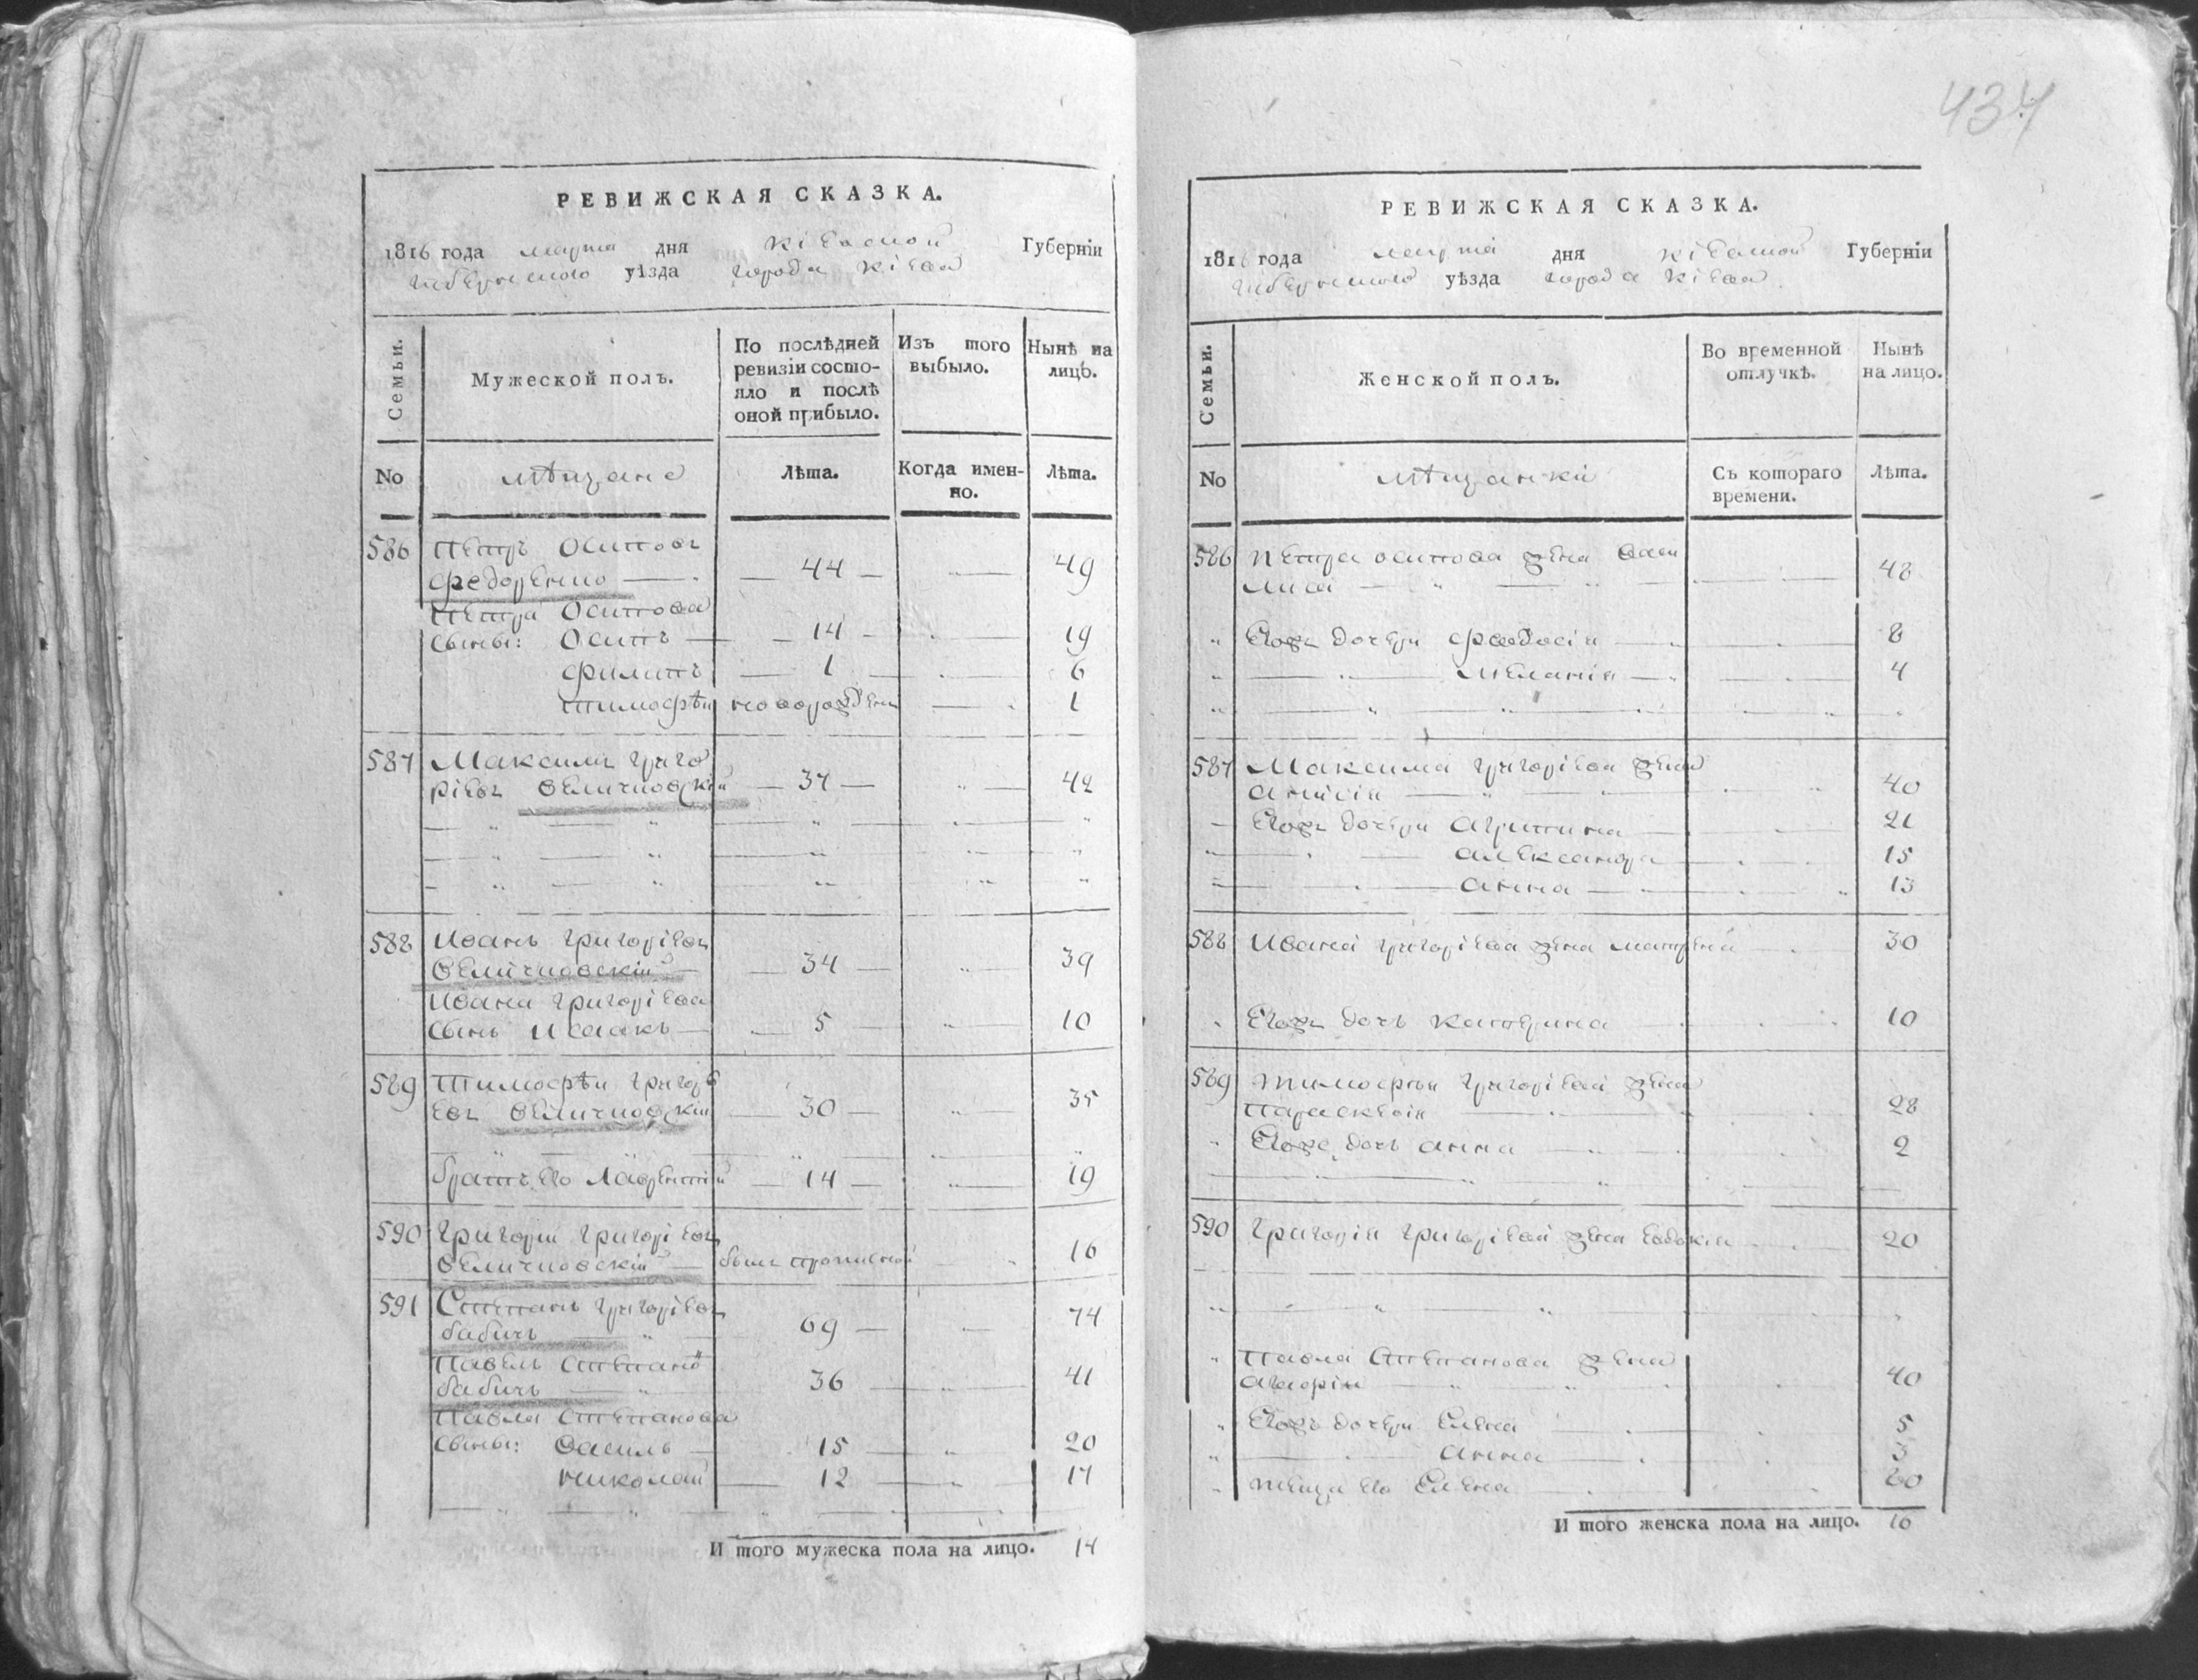 434
РЕВИЖСКАЯ СКАЗКА.
1816 года марта дня Кіевской Губерніи
Губернского уѣзда города Кіева
Семьи.
Мужеской полъ.
По послѣдней ревизіи состояло и послѣ оной прибыло.
Изъ того выбыло.
Нынѣ на лицо.
No
мѣщане
Лѣта.
Когда именно.
Лѣта.
586 Петръ Осиповъ
Федоренко — 44 — 49
Петра Осипова
сыны: Осипъ — 14 — 19
Филипъ — 1 — 6
Тимофѣй новорожденъ 1
587 Максимъ Григо
ріевъ Величковскій — 37 — 42
588 Иванъ Григоріевъ
Величковскій — 34 — 39
Ивана Григоріева
сынъ Исаакъ — 5 10
589 Тимофѣй Григорі
евъ Величковскій — 30 — 35
братъ его Лаврентій — 14 — 19
590 Григорій Григоріевъ
Величковскій — былъ прописной 16
591 Степанъ Григоріевъ
бабичъ 69 — 74
Павелъ Степановъ
бабичъ 36 — 41
Павла Степанова
сыны: Василь — 15 — 20
Николай — 12 — 17
И того мужеска пола на лицо. 14
РЕВИЖСКАЯ СКАЗКА.
1816 года марта дня Кіевской Губерніи
Губернского уѣзда города Кіева
Семьи.
Женской полъ.
Во временной отлучкѣ.
Нынѣ на лицо.
No
мѣщанки
Съ котораго времени.
Лѣта.
586 Петра Осипова жена Васи
лиса 48
Егожъ дочери Феодосія 8
Меланія 4
587 Максима Григоріева жена
Анисія 40
Егожъ дочери Агрипина 21
Александра 15
Анна 13
588 Ивана Григоріева жена Матрена 30
Егожъ дочь Катерина 10
589 Тимофѣя Григоріева жена
Параскевія 28
Егоже дочь Анна 2
590 Григорія Григоріева жена Евдокія 20
Павла Степанова жена
Агафія 40
Егожъ дочери Елена 5
Анна 3
теща его Елена 60
И того женска пола на лицо. 16